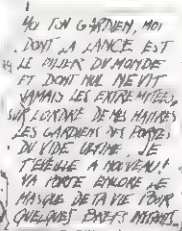 MOI TON GARDIEN, MOI
DONT LA LANCE EST
LE PILIER DU MONDE
ET DONT NUL NE VIT
JAMAIS LES EXTREMITEES,
SUR L'ORDRE DE MES MAITRES
LES GARDIENS DES PORTES
DU VIDE ULTIME. JE
T'EVEILLE A NOUVEAU!
VA PORTE ENCORE LE
MASQUE DE TA VIE POUR
QUELQUES BREFS INSTANTS.